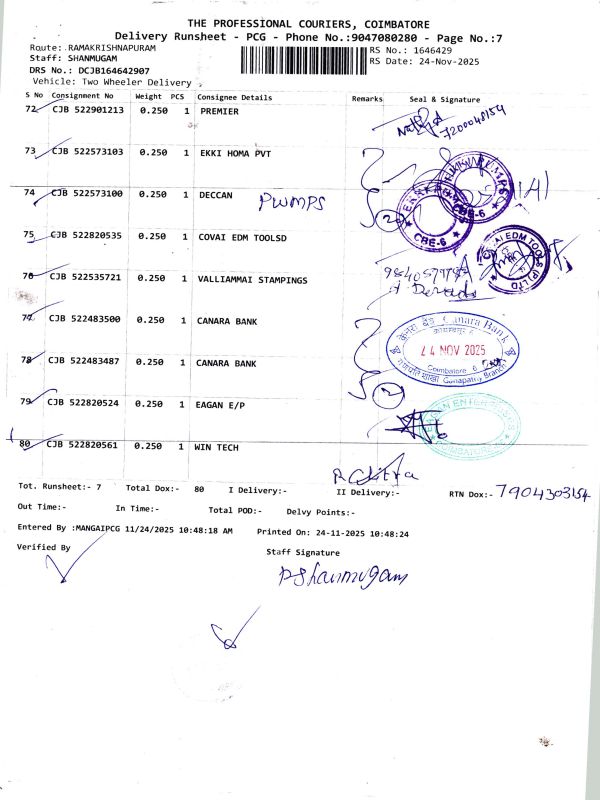 THE PROFESSIONAL COURIERS, COIMBATORE
Delivery Runsheet - PCG - Phone No.:9047080280 - Page No.:7
Route: RAMAKRISHNAPURAM
RS No.: 1646429
Staff: SHANMUGAM
RS Date: 24-Nov-2025
DRS No.: DCJB164642907
Vehicle: Two Wheeler Delivery
S No Consignment No Weight PCS Consignee Details Remarks Seal & Signature
72 CJB 522901213 0.250 1 PREMIER
7200048154
73 CJB 522573103 0.250 1 EKKI HOMA PVT
74 CJB 522573100 0.250 1 DECCAN PUMPS
2
CBE-6
CBE-6
75 CJB 522820535 0.250 1 COVAI EDM TOOLSD
COVAI EDM TOOLS (P) LTD
76 CJB 522535721 0.250 1 VALLIAMMAI STAMPINGS
77 CJB 522483500 0.250 1 CANARA BANK
केनरा बैंक Canara Bank
24 NOV 2025
Coimbatore 6
Ganapathy Branch
78 CJB 522483487 0.250 1 CANARA BANK
2
79 CJB 522820524 0.250 1 EAGAN E/P
EAGAN ENTERPRISES
COIMBATORE
80 CJB 522820561 0.250 1 WIN TECH
R Chitra
Tot. Runsheet:- 7 Total Dox:- 80 I Delivery:- II Delivery:- RTN Dox:- 7904303154
Out Time:- In Time:- Total POD:- Delvy Points:-
Entered By :MANGAIPCG 11/24/2025 10:48:18 AM Printed On: 24-11-2025 10:48:24
Verified By
Staff Signature
P Shanmugam